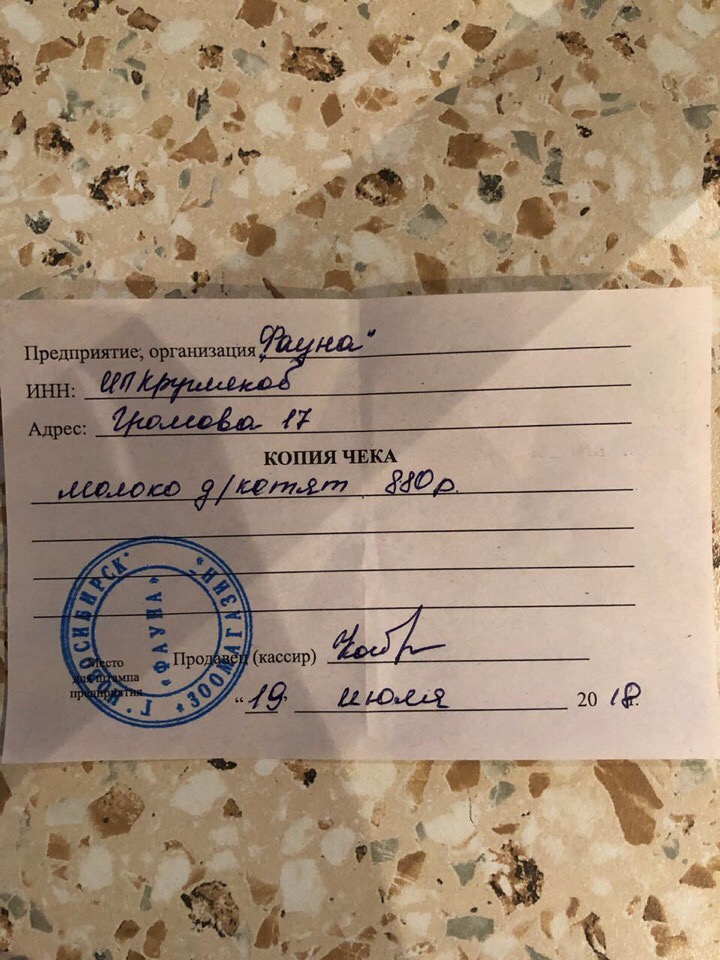 Предприятие, организация „Фауна"
ИНН: ИП Кругляков
Адрес: Громова 17
КОПИЯ ЧЕКА
молоко д/котят 880р.
Продавец (кассир)
Место
для штампа
предприятия
"19" июля 2018г.
Г. НОВОСИБИРСК * ЗООМАГАЗИН
«ФАУНА»